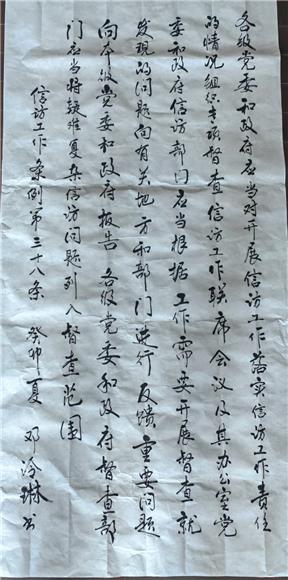 各级党委和政府应当对开展信访工作落实信访工作责任
的情况组织专项督查信访工作联席会议及其办公室党
委和政府信访部门应当根据工作需要开展督查就
发现的问题向有关地方和部门进行反馈重要问题
向本级党委和政府报告各级党委和政府督查部
门应当将疑难复杂信访问题列入督查范围
信访工作条例第三十八条 癸卯夏 邓泠琳书